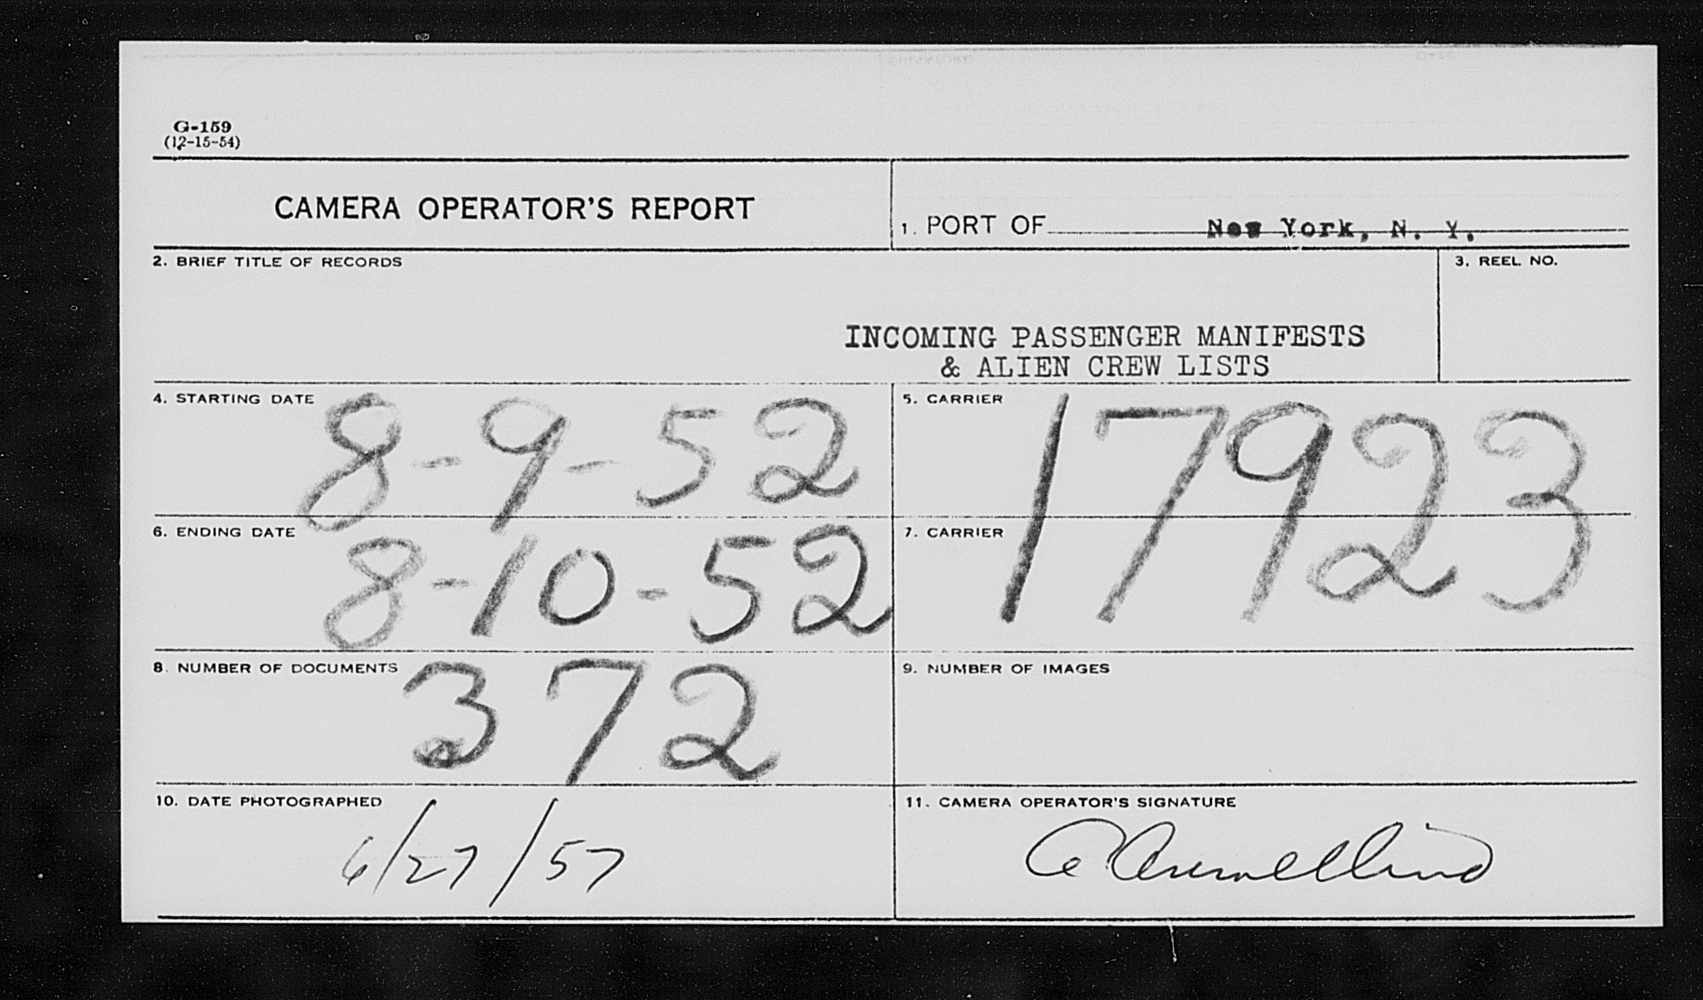 G-159
(12-15-54)
CAMERA OPERATOR'S REPORT
1. PORT OF New York, N. Y.
2. BRIEF TITLE OF RECORDS
3. REEL NO.
INCOMING PASSENGER MANIFESTS
& ALIEN CREW LISTS
4. STARTING DATE 8-9-52
5. CARRIER 17923
6. ENDING DATE 8-10-52
7. CARRIER
8. NUMBER OF DOCUMENTS 372
9. NUMBER OF IMAGES
10. DATE PHOTOGRAPHED
6/27/57
11. CAMERA OPERATOR'S SIGNATURE